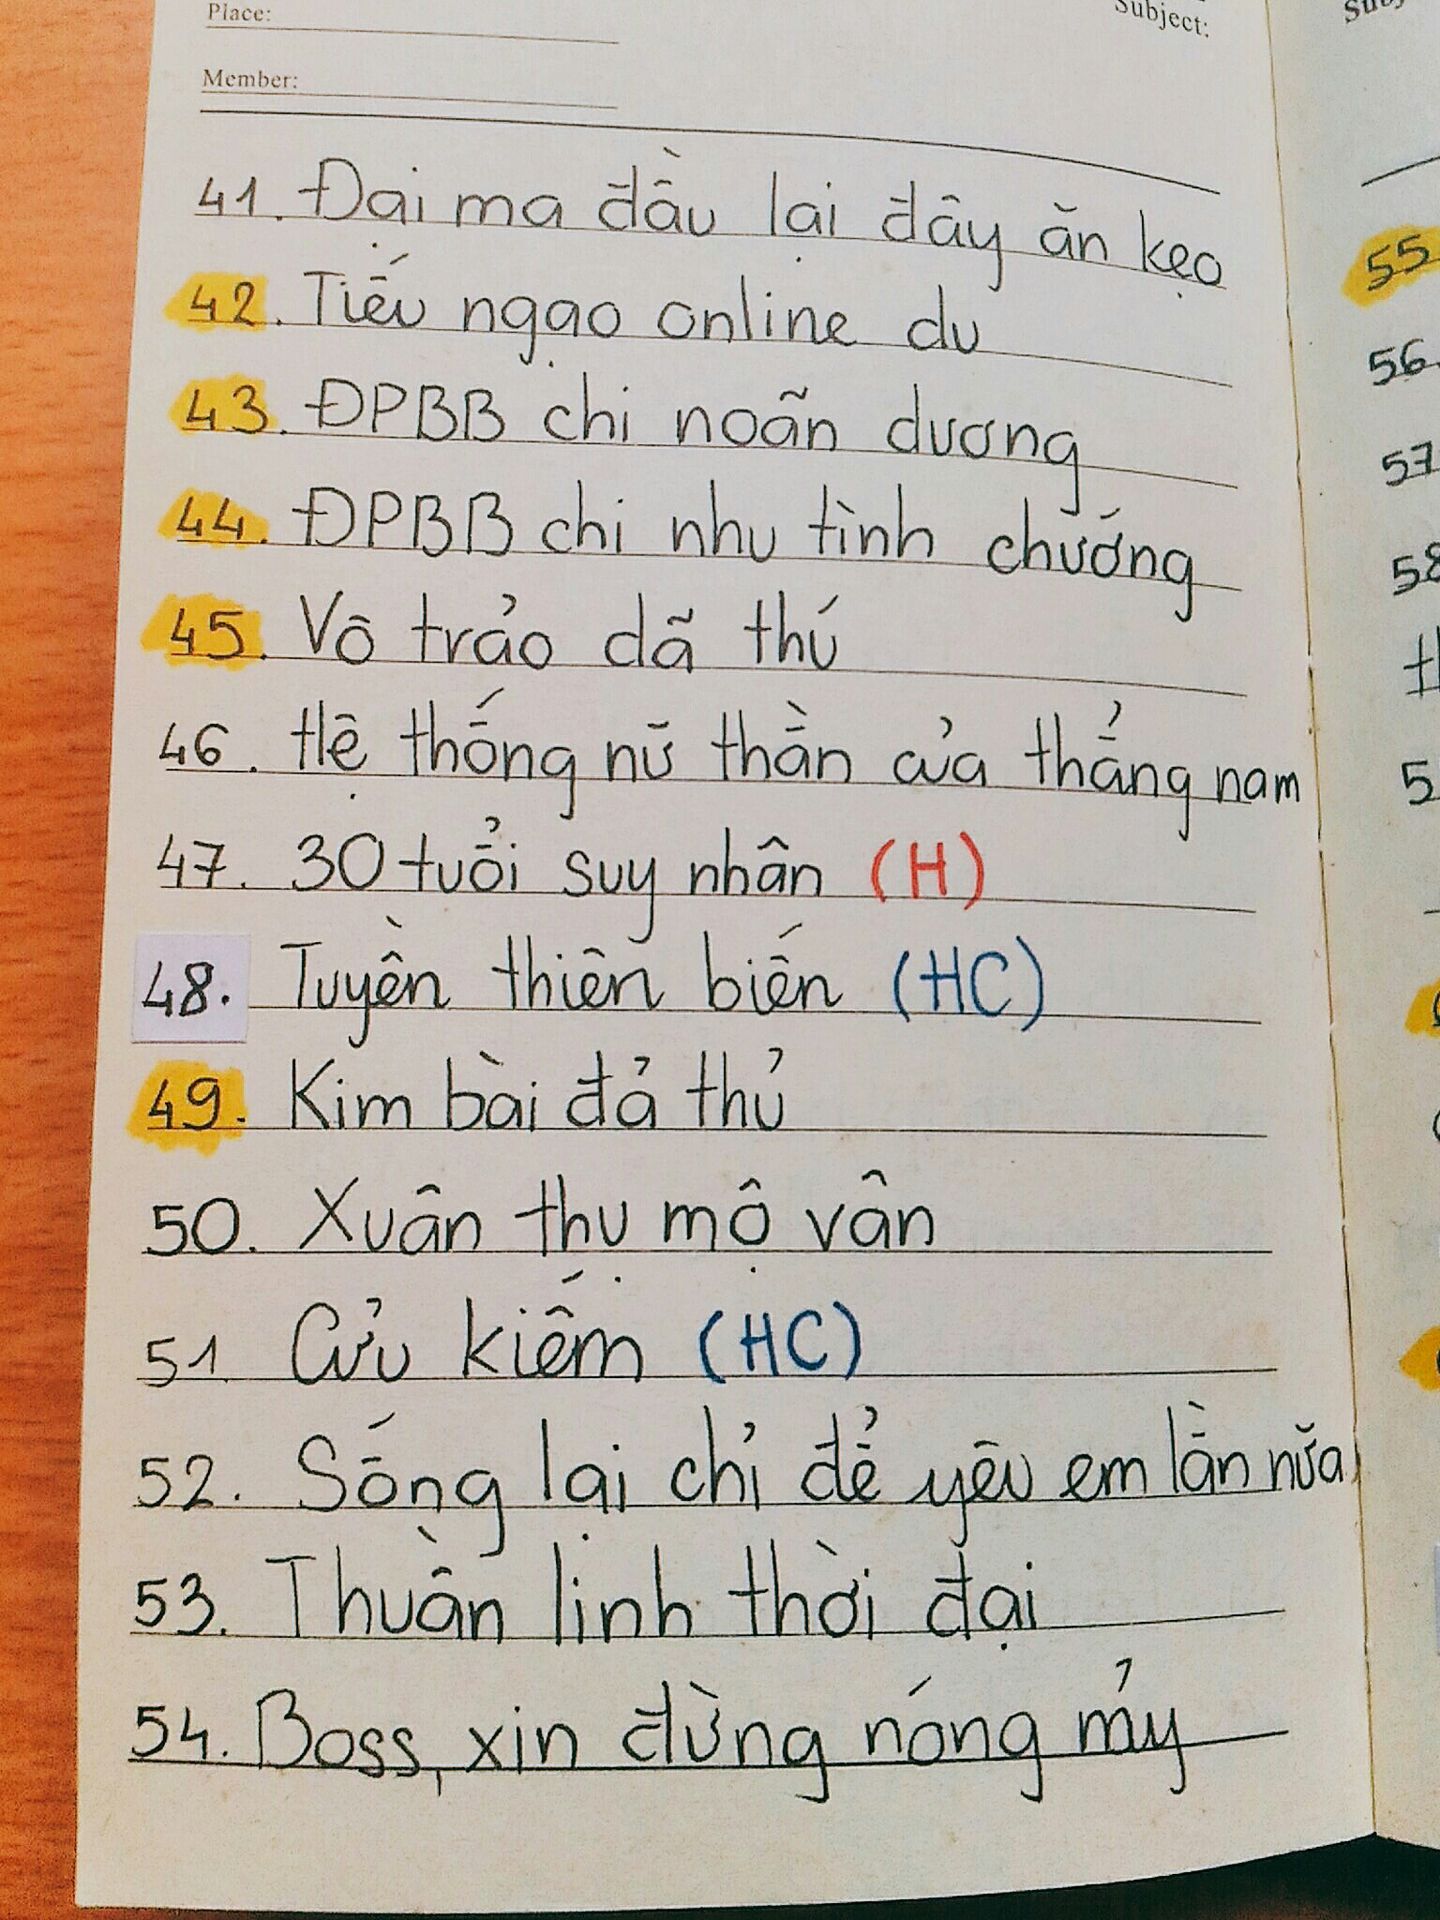 Place:
Subject:
Member:
41. Đại ma đầu lại đây ăn kẹo
42. Tiếu ngạo online du
43. ĐPBB chi noãn dương
44. ĐPBB chi như tình chướng
45. Vô trảo dã thú
46. Hệ thống nữ thần của thẳng nam
47. 30 tuổi suy nhân (H)
48. Tuyền thiên biến (HC)
49. Kim bài đả thủ
50. Xuân thụ mộ vân
51. Cửu kiếm (HC)
52. Sống lại chỉ để yêu em lần nữa
53. Thuần linh thời đại
54. Boss, xin đừng nóng mảy
55
56.
57
58